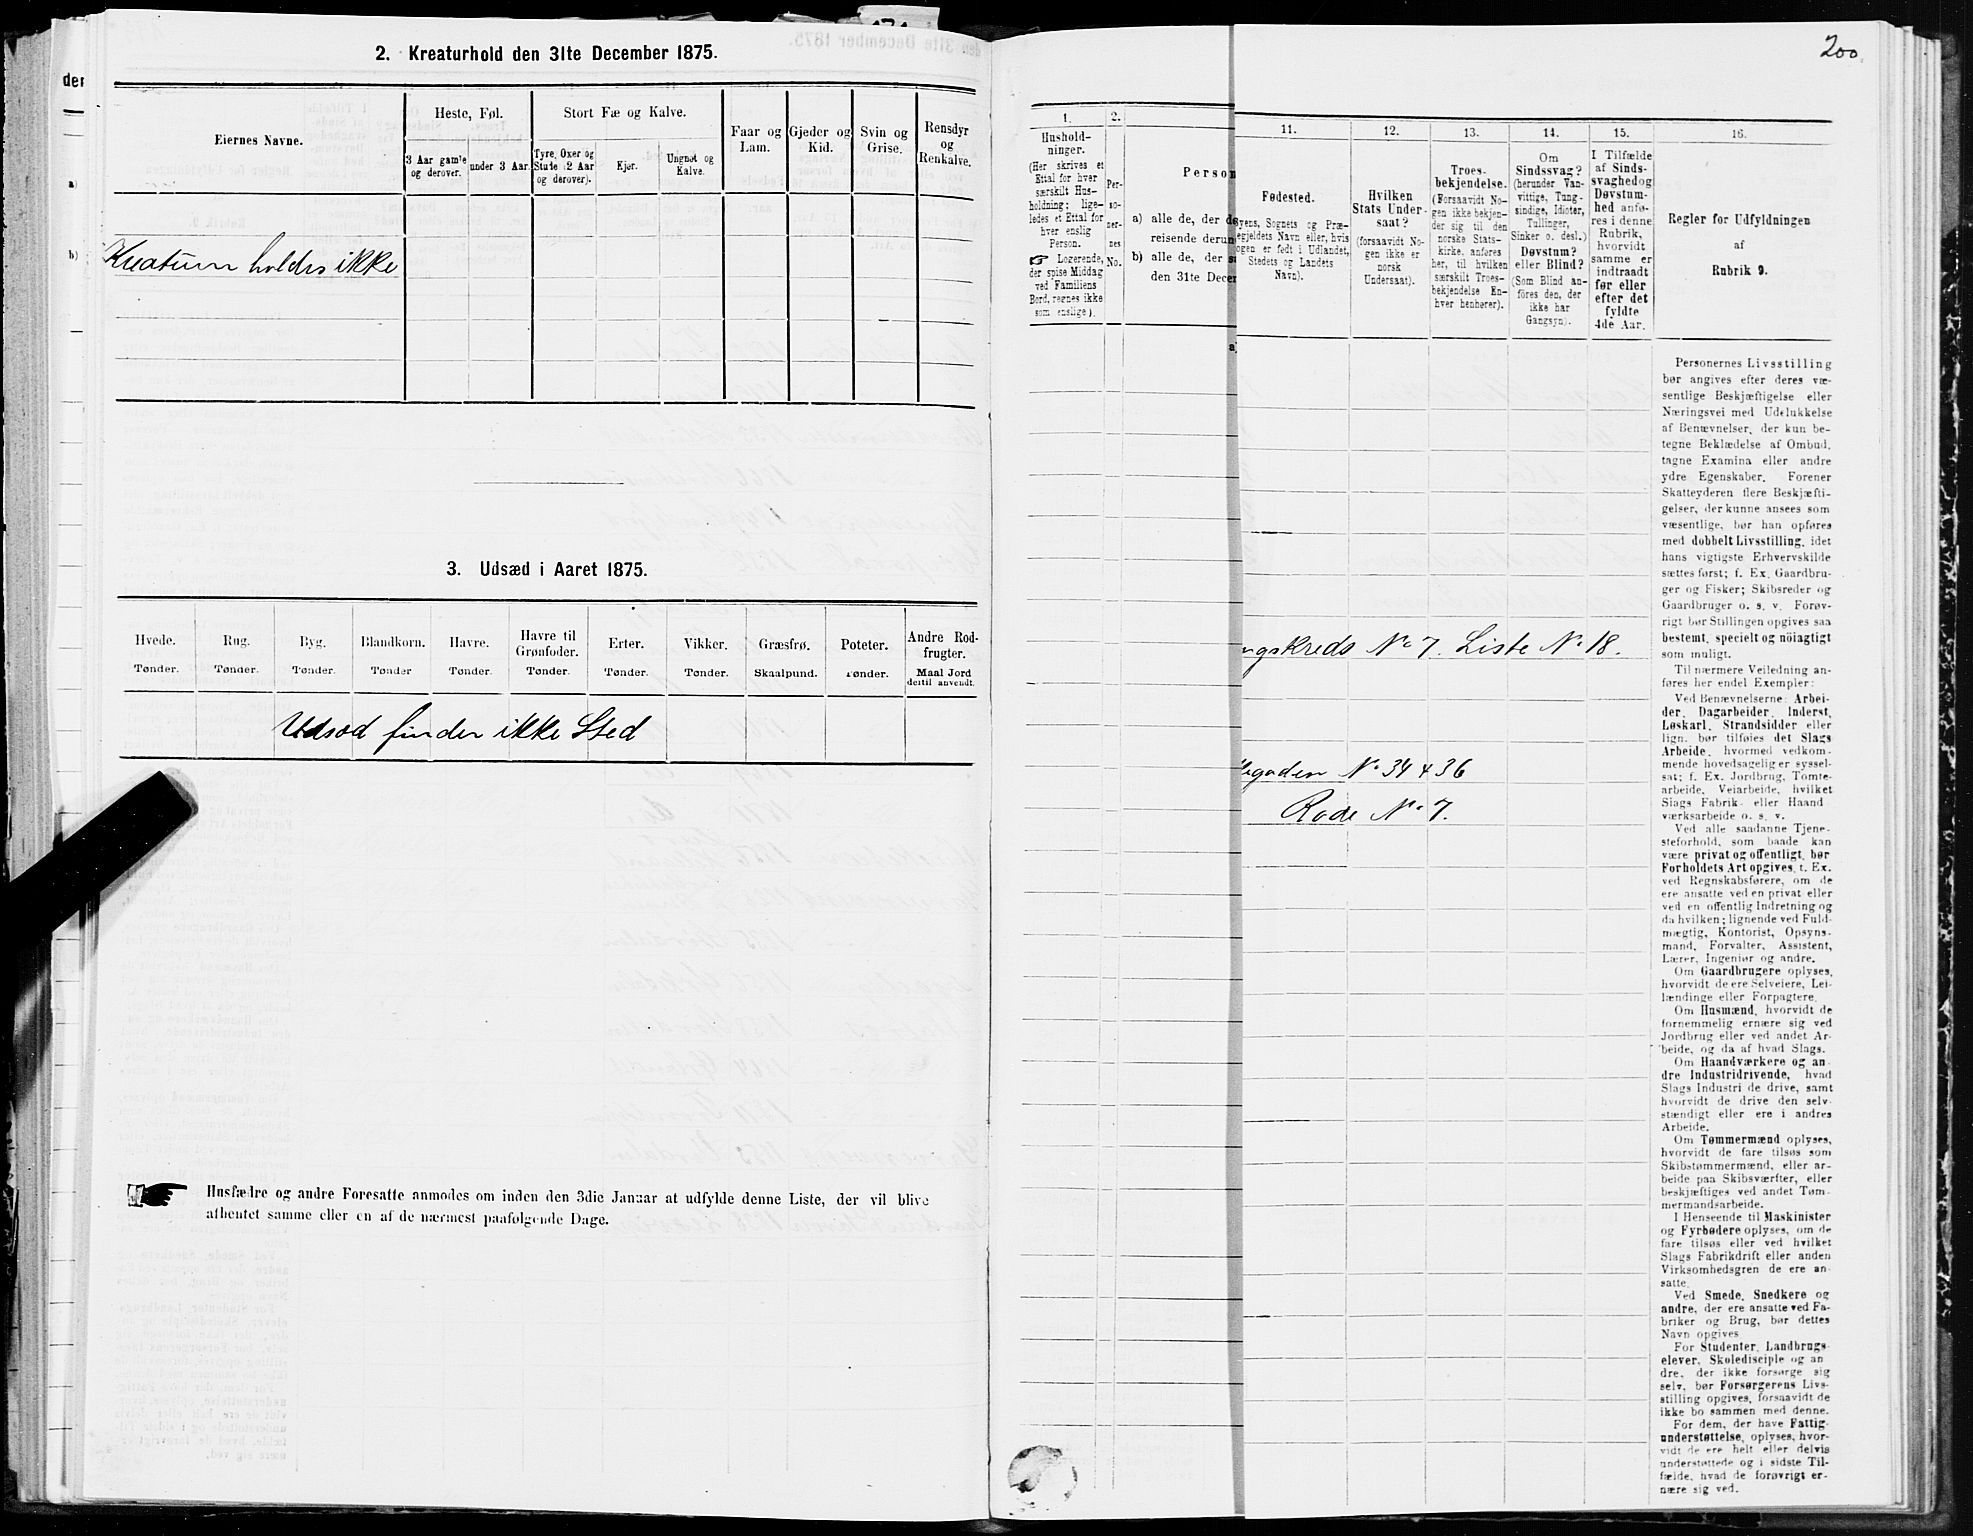 2. Kreaturhold den 31te December 1875.
Eiernes Navne.
Heste, Føl.
Stort Fæ og Kalve.
Faar og
Lam.
Gjeder og
Kid.
Svin og
Grise.
Rensdyr
og
Renkalve.
3 Aar gamle
og derover.
under 3 Aar.
Tyre, Oxer og
Stude (2 Aar
og derover).
Kjør.
Ungnøt og
Kalve.
Kreaturer holdes ikke
3. Udsæd i Aaret 1875.
Hvede.
Tønder.
Rug.
Tønder.
Byg.
Tønder.
Blandkorn.
Tønder
Havre.
Tønder.
Havre til
Grønfoder.
Tønder.
Erter.
Tønder.
Vikker.
Tønder.
Græsfrø.
Skaalpund.
Poteter.
Tønder.
Andre Rod-
frugter.
Maal Jord
dertil anvendt.
Udsæd finder ikke Sted
Husfædre og andre Foresatte anmodes om inden den 3die Januar at udfylde denne Liste, der vil blive
afhentet samme eller en af de nærmest paafølgende Dage.
200.
1.
Hushold-
ninger.
(Her skrives et
Ettal for hver
særskilt Hus-
holdning; lige-
ledes et Ettal for
hver enslig
Person.
Logerende,
der spise Middag
ved Familiens
Bord, regnes ikke
som enslige).
2.
Per-
so-
ner-
nes
No.
Person
a) alle de, der
reisende derun
b) alle de, der
den 31te Decem
11.
Fødested.
Byens, Sognets og Præ-
egjeldets Navn eller, hvis
ogen er født i Udlandet,
Stedets og Landets
Navn).
12.
Hvilken
Stats Under-
saat?
(forsaavidt No-
gen ikke er
norsk
Undersaat).
13.
Troes-
bekjendelse.
(Forsaavidt No-
gen ikke bekjen-
der sig til den
norske Stats-
kirke, anføres
her, til hvilken
særskilt Troes-
bekjendelse En-
hver henhører).
14.
Om
Sindssvag?
(herunder Van-
vittige, Tung-
sindige, Idioter,
Tullinger,
Sinker o. desl.)
Døvstum?
eller Blind?
(Som Blind an-
føres den, der
ikke har
Gangsyn).
15.
I Tilfælde
af Sinds-
svaghed og
Døvstum-
hed anfø-
res i denne
Rubrik,
hvorvidt
samme er
indtraadt
før eller
efter det
fyldte
4de Aar.
16.
Regler for Udfyldningen
af
Rubrik 9.
ngskreds No 7. Liste No 18.
legaden No 34 & 36
Rode No 7.
Personernes Livsstilling
bør angives efter deres væ-
sentlige Beskjæftigelse eller
Næringsvei med Udelukkelse
af Benævnelser, der kun be-
tegne Beklædelse af Ombud,
tagne Examina eller andre
ydre Egenskaber. Forener
Skatteyderen flere Beskjæfti-
gelser, der kunne ansees som
væsentlige, bør han opføres
med dobbelt Livsstilling, idet
hans vigtigste Erhvervskilde
sættes først; f. Ex. Gaardbru-
ger og Fisker; Skibsreder og
Gaardbruger o. s. v. Forøv-
rigt bør Stillingen opgives saa
bestemt, specielt og nöiagtigt
som muligt.
Til nærmere Veiledning an-
føres her endel Exempler:
Ved Benævnelserne: Arbei-
der, Dagarbeider, Inderst,
Løskarl, Strandsidder eller
lign. bør tilføies det Slags
Arbeide, hvormed vedkom-
mende hovedsagelig er syssel-
sat; f. Ex. Jordbrug, Tomte-
arbeide, Veiarbeide, hvilket
Slags Fabrik- eller Haand
værksarbeide o. s. v.
Ved alle saadanne Tjene-
steforhold, som baade kan
være privat og offentligt, bør
Forholdets Art opgives, f. Ex.
ved Regnskabsførere, om de
ere ansatte ved en privat eller
ved en offentlig Indretning og
da hvilken; lignende ved Fuld-
mægtig, Kontorist, Opsyns-
mand, Forvalter, Assistent,
Lærer, Ingeniør og andre.
Om Gaardbrugere oplyses,
hvorvidt de ere Selveiere, Lei-
lændinge eller Forpagtere.
Om Husmænd, hvorvidt de
fornemmelig ernære sig ved
Jordbrug eller ved andet Ar-
beide, og da af hvad Slags.
Om Haandværkere og an-
dre Industridrivende, hvad
Slags Industri de drive, samt
hvorvidt de drive den selv-
stændigt eller ere i andres
Arbeide.
Om Tømmermænd oplyses,
hvorvidt de fare tilsøs som
Skibstømmermænd, eller ar-
beide paa Skibsværfter, eller
beskjæftiges ved andet Tøm-
mermandsarbeide.
I Henseende til Maskinister
og Fyrbødere oplyses, om de
fare tilsøs eller ved hvilket
Slags Fabrikdrift eller anden
Virksomhedsgren de ere an-
satte.
Ved Smede, Snedkere og
andre, der ere ansatte ved Fa-
briker og Brug, bør dettes
Navn opgives
For Studenter, Landbrugs-
elever, Skoledisciple og an
dre, der ikke forsørge sig
selv, bør Forsørgerens Livs-
stilling opgives, forsaavidt de
ikke bo sammen med denne.
For dem, der have Fattig-
understøttelse, oplyses, hvor-
vidt de ere helt eller delvis
understøttede og i sidste Til-
fælde, hvad de forøvrigt er-
nære sig ved.